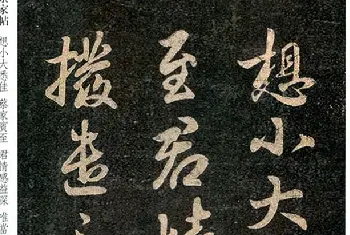 想小大
至君情
撥遣
蔡家帖
想小大悉佳 蔡家賓至 君情感益深